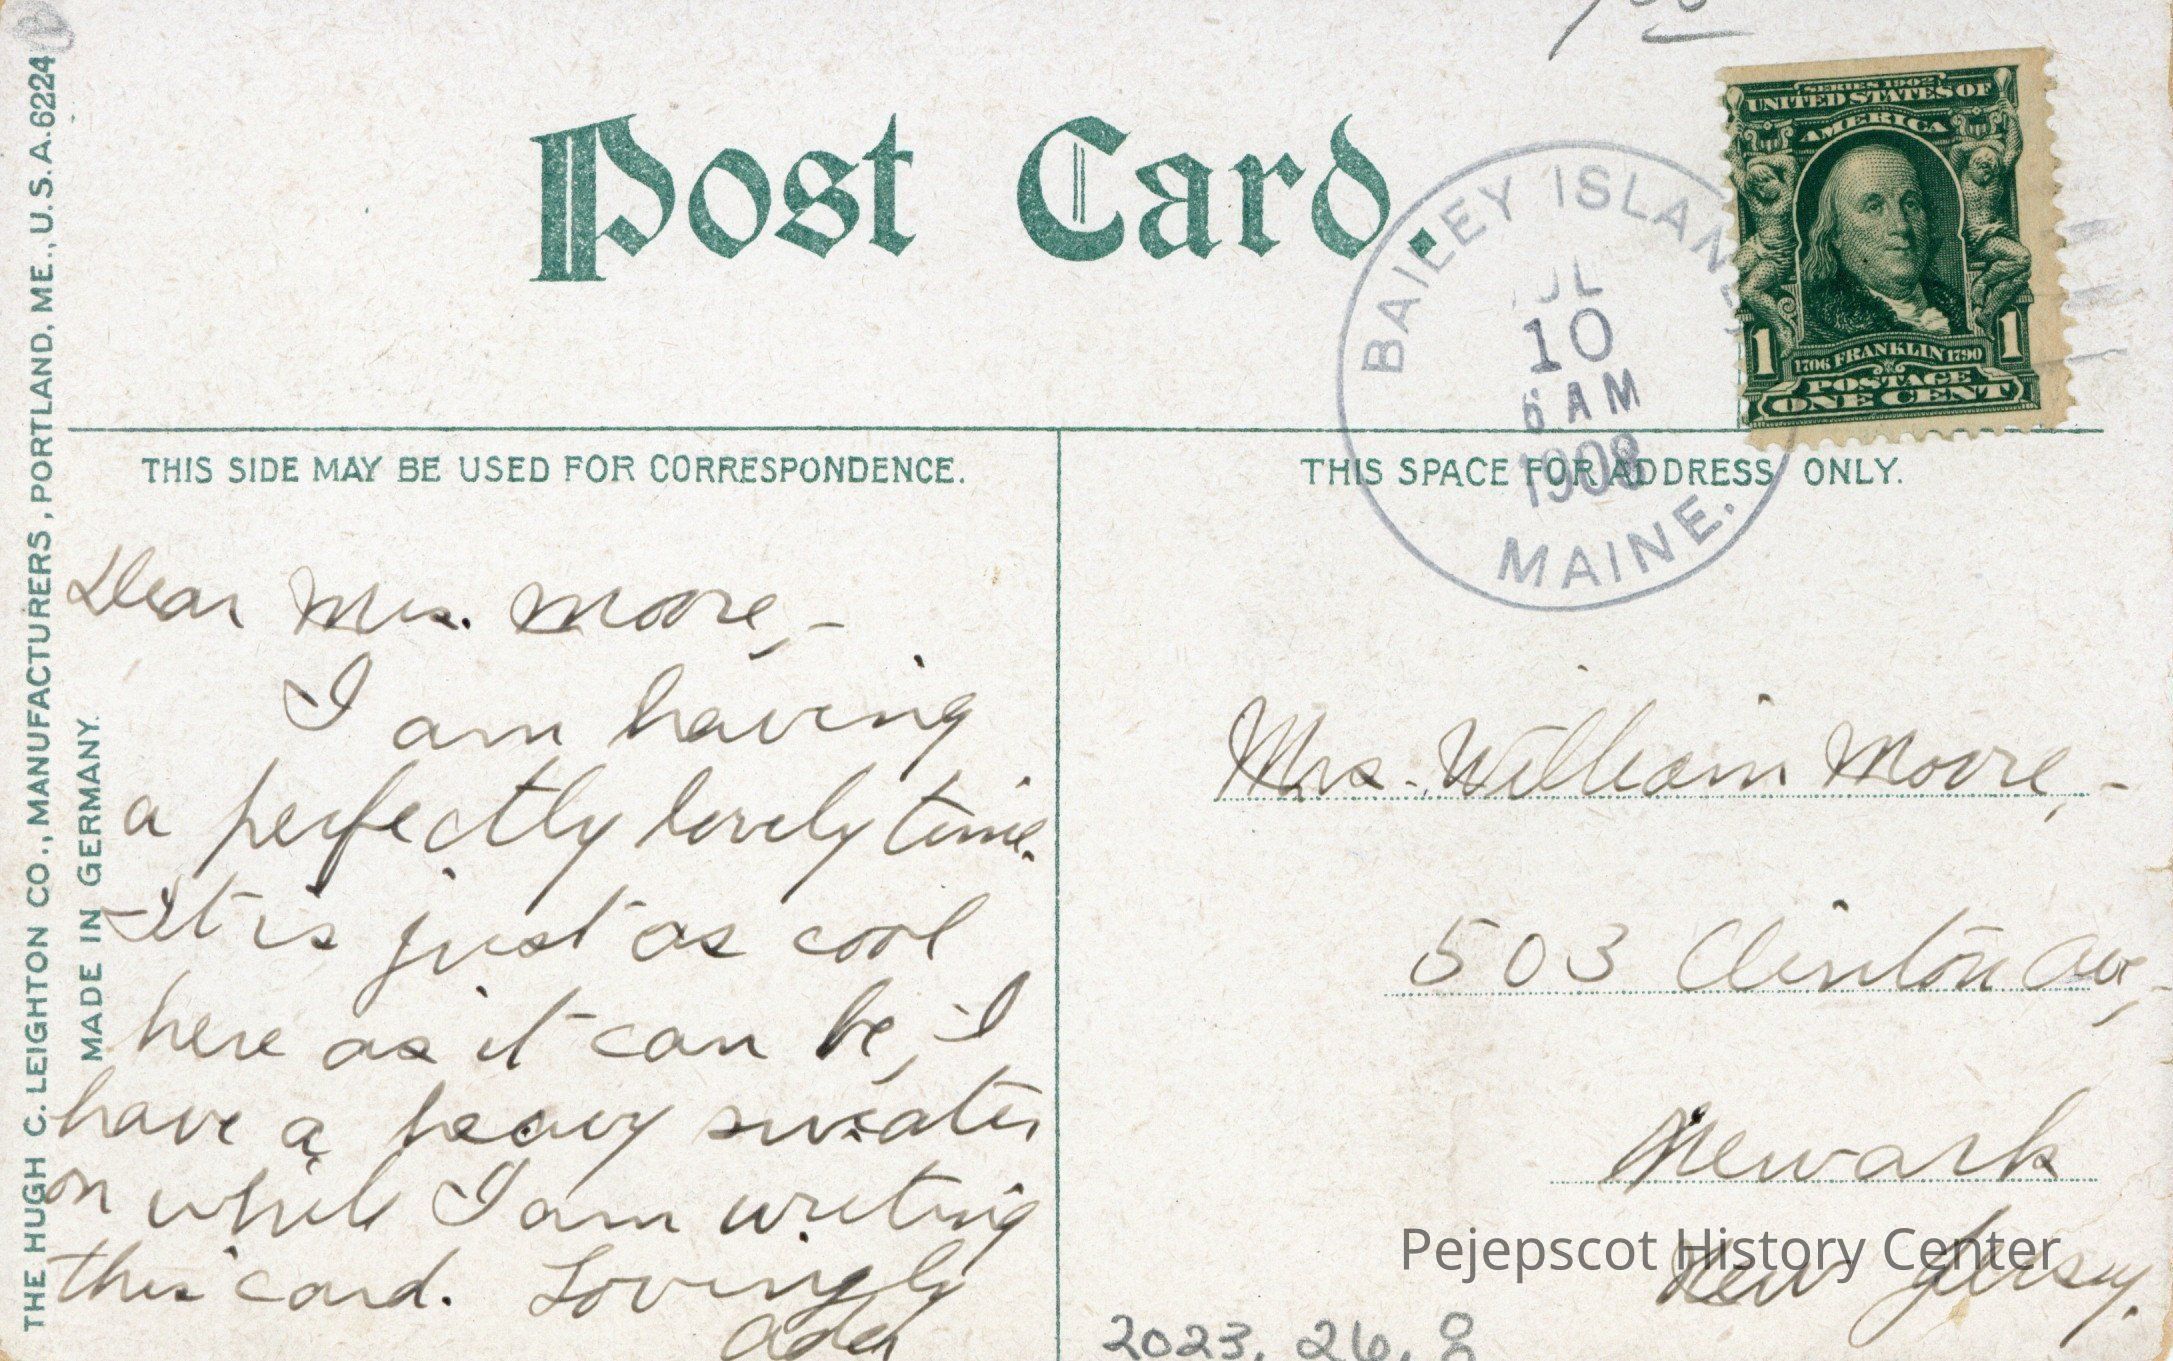 THE HUGH C. LEIGHTON CO., MANUFACTURERS, PORTLAND, ME., U.S.A. 6224
MADE IN GERMANY.
Post Card.
BAILEY ISLAND
JL
10
6 AM
1908
MAINE.
SERIES 1902
UNITED STATES OF
AMERICA
1 1
1706 FRANKLIN 1790
POSTAGE
ONE CENT
THIS SIDE MAY BE USED FOR CORRESPONDENCE.
Dear Mrs. Moore,-
I am having
a perfectly lovely time.
It is just as cool
here as it can be, I
have a heavy sweater
on while I am writing
this card. Lovingly
Ada
THIS SPACE FOR ADDRESS ONLY.
Mrs. William Moore,-
503 Clinton Ave,-
Newark
New Jersey.
Pejepscot History Center
2023.26.8